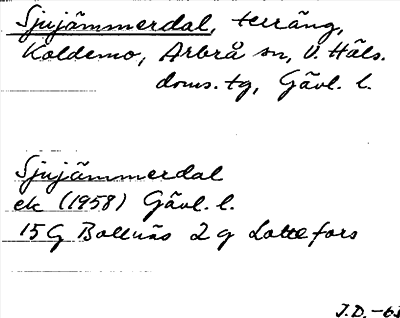 Sjujämmerdal, terräng,
Koldemo, Arbrå sn, V. Häls.
doms. tg, Gävl. l.
Sjujämmerdal
ek (1958) Gävl. l.
15G Bollnäs 2 g Lottefors
J.D. -63